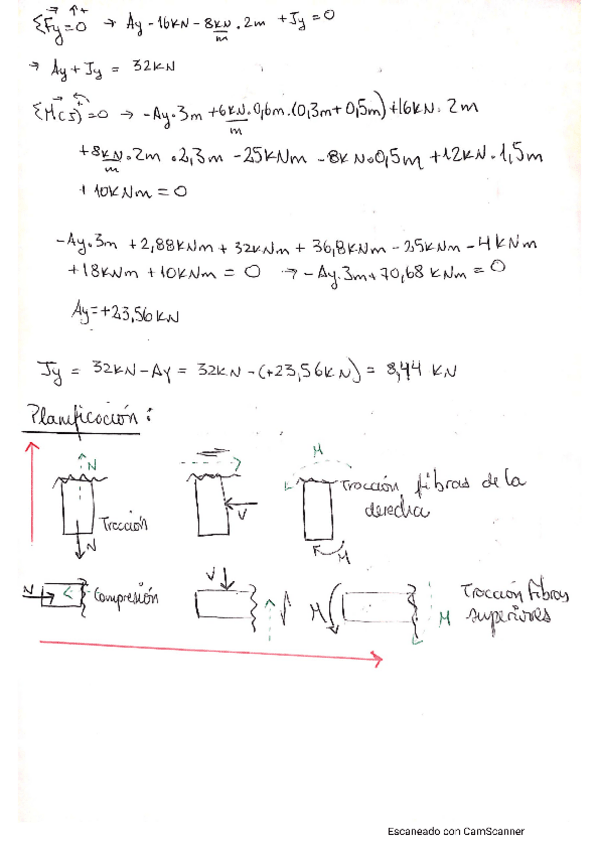 ΣFy=0 → Ay - 16kN - 8kN/m · 2m + Jy = 0
→ Ay + Jy = 32kN
ΣM(J)=0 → -Ay·3m + 6kN/m·0,6m·(0,3m+0,5m) + 16kN·2m
+8kN/m·2m·2,3m - 25kNm - 8kN·0,5m + 12kN·1,5m
+ 10kNm = 0
-Ay·3m + 2,88kNm + 32kNm + 36,8kNm - 25kNm - 4kNm
+18kNm + 10kNm = 0 → -Ay·3m + 70,68 kNm = 0
Ay = +23,56kN
Jy = 32kN - Ay = 32kN - (+23,56kN) = 8,44 kN
Planificación:
N
N
Tracción
V
M
M
Tracción fibras de la
derecha
N
Compresión
V
M
M
Tracción fibras
superiores
Escaneado con CamScanner